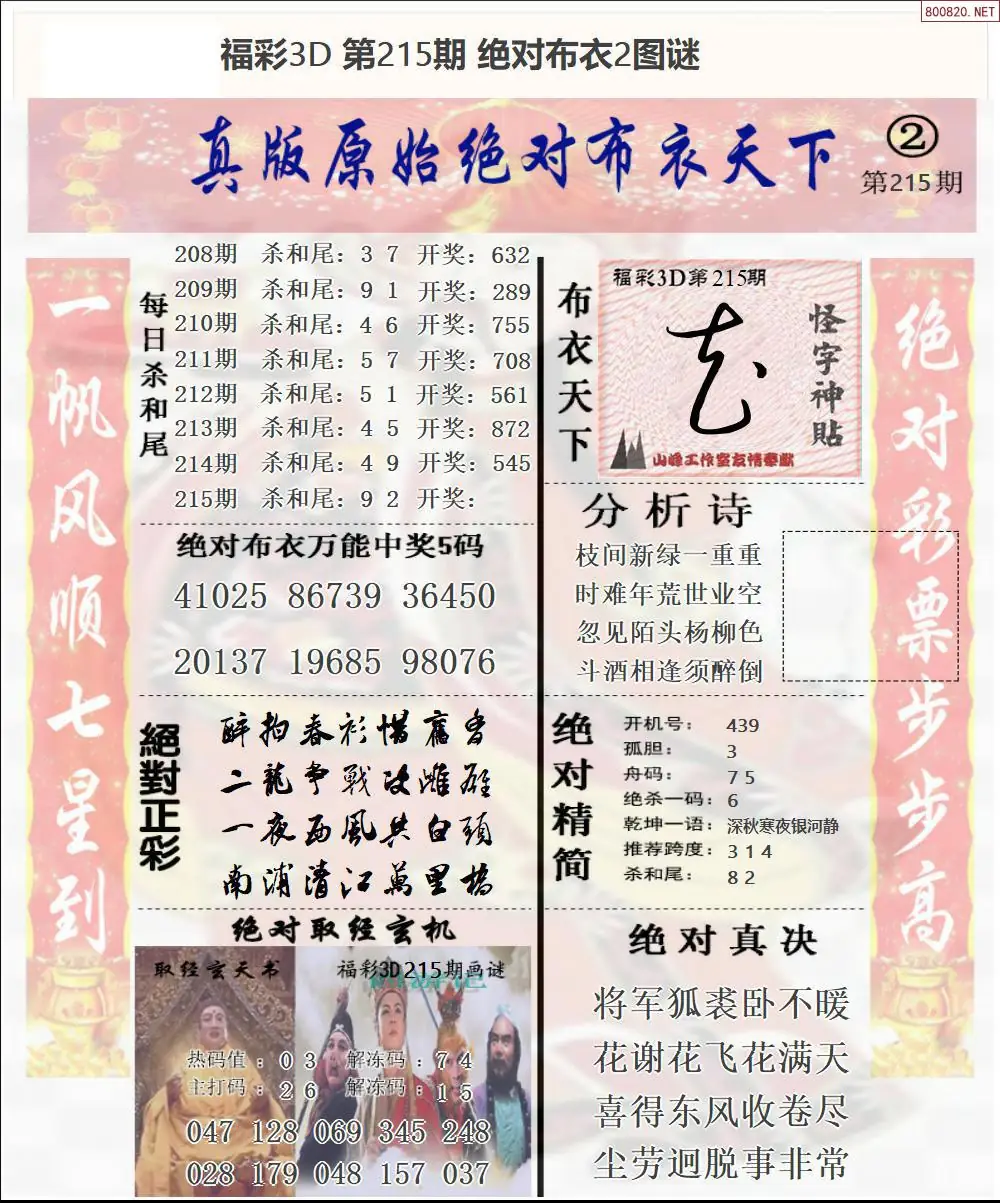 800820.NET
福彩3D 第215期 绝对布衣2图谜
真版原始绝对布衣天下
②
第215期
一帆风顺七星到
每日杀和尾
208期 杀和尾：3 7 开奖：632
209期 杀和尾：9 1 开奖：289
210期 杀和尾：4 6 开奖：755
211期 杀和尾：5 7 开奖：708
212期 杀和尾：5 1 开奖：561
213期 杀和尾：4 5 开奖：872
214期 杀和尾：4 9 开奖：545
215期 杀和尾：9 2 开奖：
绝对布衣万能中奖5码
41025 86739 36450
20137 19685 98076
絕對正彩
二龍争戰决雌雄
一夜西風共白頭
南浦清江萬里橋
绝对取经玄机
取经玄天书
福彩3D215期画谜
热码值：0 3 解冻码：7 4
主打码：2 6 解冻码：1 5
047 128 069 345 248
028 179 048 157 037
布衣天下
福彩3D第215期
怪字神貼
山峰工作室友情奉献
分析诗
枝间新绿一重重
时难年荒世业空
忽见陌头杨柳色
斗酒相逢须醉倒
绝对精简
开机号： 439
孤胆： 3
舟码： 7 5
绝杀一码：6
乾坤一语：深秋寒夜银河静
推荐跨度：3 1 4
杀和尾： 8 2
绝对真决
将军狐裘卧不暖
花谢花飞花满天
喜得东风收卷尽
尘劳迥脱事非常
绝对彩票步步高